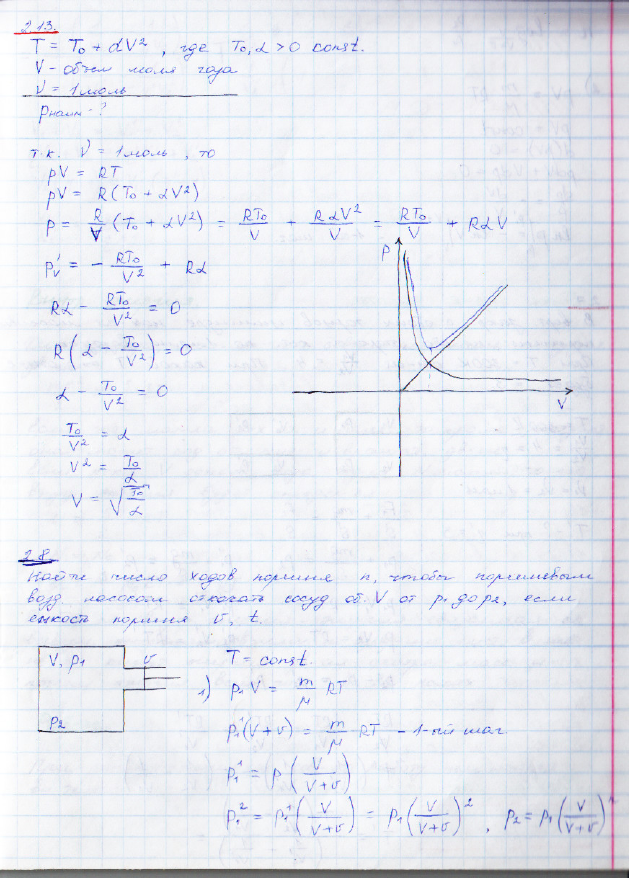 2.13.
T = T₀ + αV², где T₀, α > 0 const.
V - объем моля газа
ν = 1 моль
pнаим - ?
т.к. ν = 1 моль, то
pV = RT
pV = R(T₀ + αV²)
p = R/V (T₀ + αV²) = RT₀/V + RαV²/V = RT₀/V + RαV
p'ᵥ = - RT₀/V² + Rα
Rα - RT₀/V² = 0
R(α - T₀/V²) = 0
α - T₀/V² = 0
T₀/V² = α
V² = T₀/α
V = √(T₀/α)
p
V
2.8.
Найти число ходов поршня n, чтобы поршневым
возд насосом откачать сосуд об. V от p₁ до p₂, если
емкость поршня v, t.
V, p₁
v
p₂
T = const.
1) p₁V = m/μ RT
p₁¹(V + v) = m/μ RT - 1-ый шаг
p₁¹ = p(V/(V+v))
p₁² = p₁¹(V/(V+v)) = p₁(V/(V+v))², p₂ = p₁(V/(V+v))ⁿ